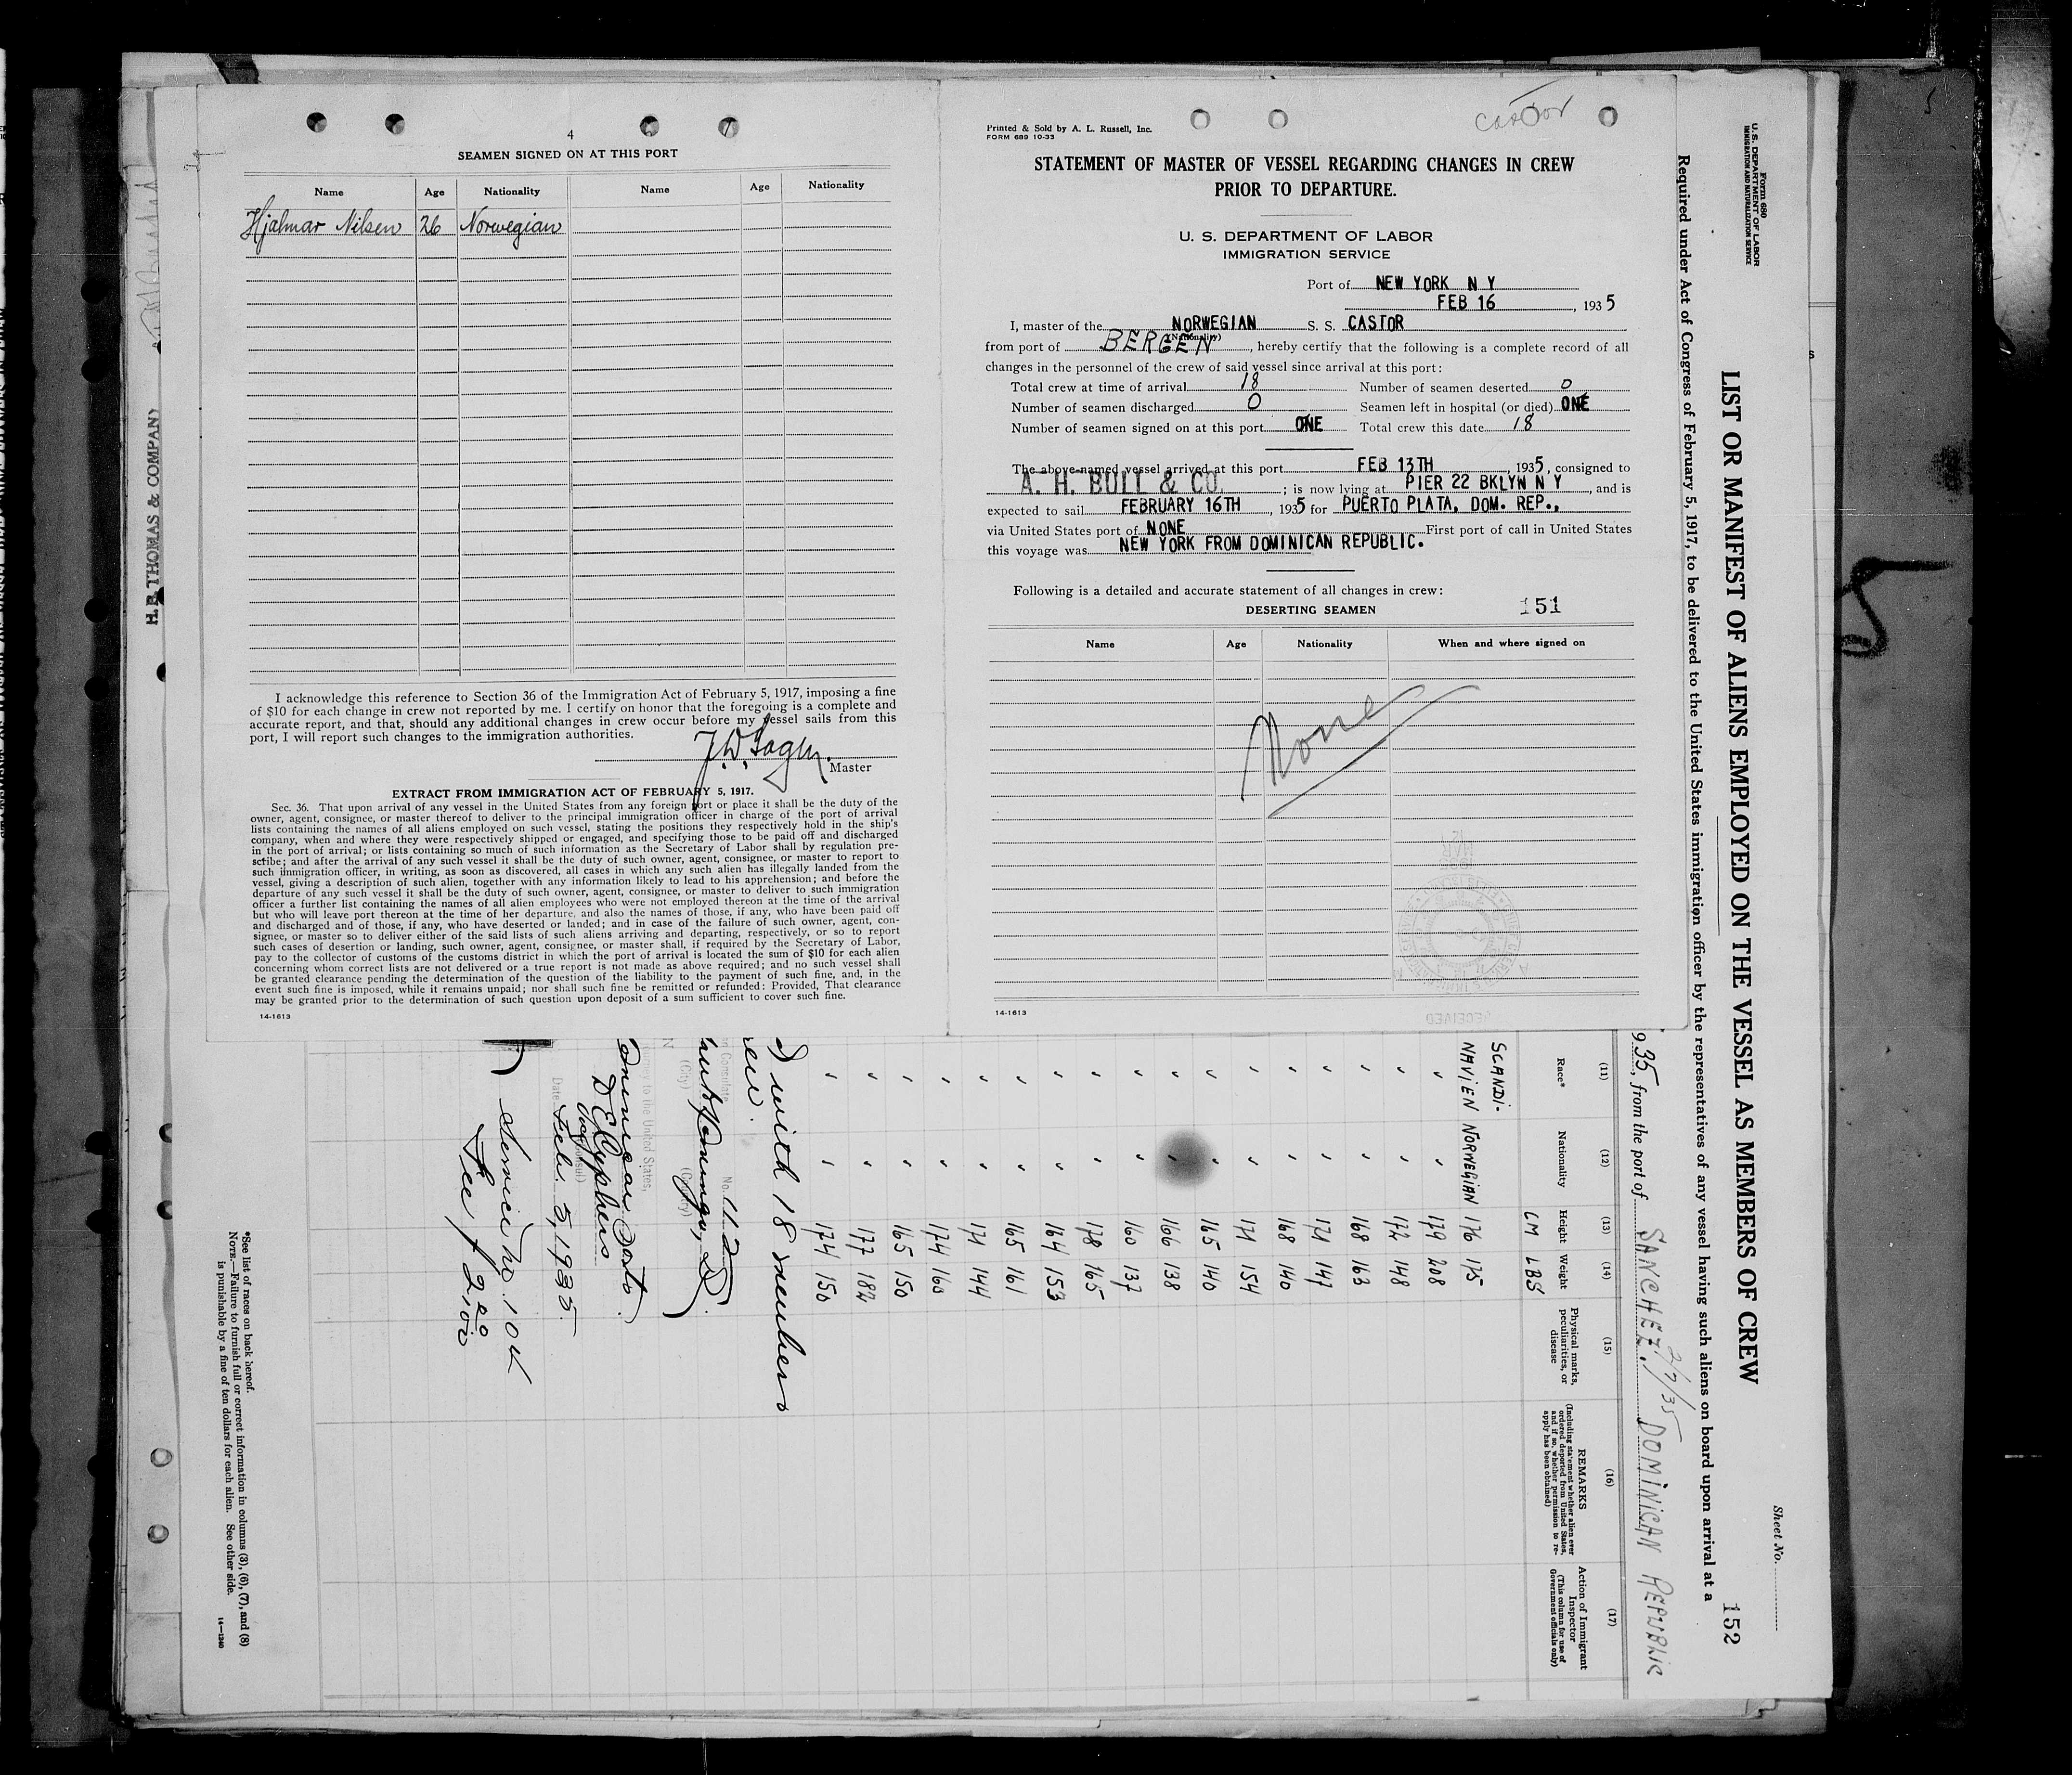 4
SEAMEN SIGNED ON AT THIS PORT
Name Age Nationality Name Age Nationality
Hjalmar Nilsen 26 Norwegian
I acknowledge this reference to Section 36 of the Immigration Act of February 5, 1917, imposing a fine
of $10 for each change in crew not reported by me. I certify on honor that the foregoing is a complete and
accurate report, and that, should any additional changes in crew occur before my vessel sails from this
port, I will report such changes to the immigration authorities.
Master
EXTRACT FROM IMMIGRATION ACT OF FEBRUARY 5, 1917.
Sec. 36. That upon arrival of any vessel in the United States from any foreign port or place it shall be the duty of the
owner, agent, consignee, or master thereof to deliver to the principal immigration officer in charge of the port of arrival
lists containing the names of all aliens employed on such vessel, stating the positions they respectively hold in the ship's
company, when and where they were respectively shipped or engaged, and specifying those to be paid off and discharged
in the port of arrival; or lists containing so much of such information as the Secretary of Labor shall by regulation pre-
scribe; and after the arrival of any such vessel it shall be the duty of such owner, agent, consignee, or master to report to
such immigration officer, in writing, as soon as discovered, all cases in which any such alien has illegally landed from the
vessel, giving a description of such alien, together with any information likely to lead to his apprehension; and before the
departure of any such vessel it shall be the duty of such owner, agent, consignee, or master to deliver to such immigration
officer a further list containing the names of all alien employees who were not employed thereon at the time of the arrival
but who will leave port thereon at the time of her departure, and also the names of those, if any, who have been paid off
and discharged and of those, if any, who have deserted or landed; and in case of the failure of such owner, agent, con-
signee, or master so to deliver either of the said lists of such aliens arriving and departing, respectively, or so to report
such cases of desertion or landing, such owner, agent, consignee, or master shall, if required by the Secretary of Labor,
pay to the collector of customs of the customs district in which the port of arrival is located the sum of $10 for each alien
concerning whom correct lists are not delivered or a true report is not made as above required; and no such vessel shall
be granted clearance pending the determination of the question of the liability to the payment of such fine, and, in the
event such fine is imposed, while it remains unpaid; nor shall such fine be remitted or refunded: Provided, That clearance
may be granted prior to the determination of such question upon deposit of a sum sufficient to cover such fine.
14-1613
Castor
Printed & Sold by A. L. Russell, Inc.
FORM 689 10-33
STATEMENT OF MASTER OF VESSEL REGARDING CHANGES IN CREW
PRIOR TO DEPARTURE.
U. S. DEPARTMENT OF LABOR
IMMIGRATION SERVICE
Port of NEW YORK N Y
FEB 16, 1935
I, master of the NORWEGIAN S. S. CASTOR
(Nationality)
from port of BERGEN, hereby certify that the following is a complete record of all
changes in the personnel of the crew of said vessel since arrival at this port:
Total crew at time of arrival 18 Number of seamen deserted 0
Number of seamen discharged 0 Seamen left in hospital (or died) ONE
Number of seamen signed on at this port ONE Total crew this date 18
The above-named vessel arrived at this port FEB 13TH, 1935, consigned to
A. H. BULL & CO. ; is now lying at PIER 22 BKLYN N Y, and is
expected to sail FEBRUARY 16TH, 1935 for PUERTO PLATA, DOM. REP.,
via United States port of NONE First port of call in United States
this voyage was NEW YORK FROM DOMINICAN REPUBLIC.
Following is a detailed and accurate statement of all changes in crew:
DESERTING SEAMEN 151
Name Age Nationality When and where signed on
None
14-1613
RECEIVED
H. B. THOMAS & COMPANY
Form 680
U. S. DEPARTMENT OF LABOR
IMMIGRATION AND NATURALIZATION SERVICE
Sheet No.
LIST OR MANIFEST OF ALIENS EMPLOYED ON THE VESSEL AS MEMBERS OF CREW
152
Required under Act of Congress of February 5, 1917, to be delivered to the United States immigration officer by the representatives of any vessel having such aliens on board upon arrival at a
935, from the port of SANCHEZ, 2/7/35 DOMINICAN REPUBLIC
(11) (12) (13) (14) (15) (16) (17)
Race* Nationality Height Weight Physical marks, peculiarities, or disease REMARKS Action of Immigrant Inspector
(Including statement whether alien ever ordered deported from United States, and if so, whether permission to reapply has been obtained)
(This column for use of Government officials only)
CM LBS
SCANDI-
NAVIEN NORWEGIAN 176 175
" " 179 208
" " 172 148
" " 168 163
" " 171 147
" " 168 140
" " 171 154
" " 165 140
" " 166 138
" " 160 137
" " 178 165
" " 164 153
" " 165 161
" " 171 144
" " 174 160
" " 165 150
" " 177 182
" " 174 150
with 18 members
No. 112
(City) (Country)
to the United States,
Date Feb. 5, 1935
Service No. 104
Fee $ 2.00
*See list of races on back hereof.
NOTE.—Failure to furnish full or correct information in columns (3), (6), (7), and (8)
is punishable by a fine of ten dollars for each alien. See other side.
14-1240